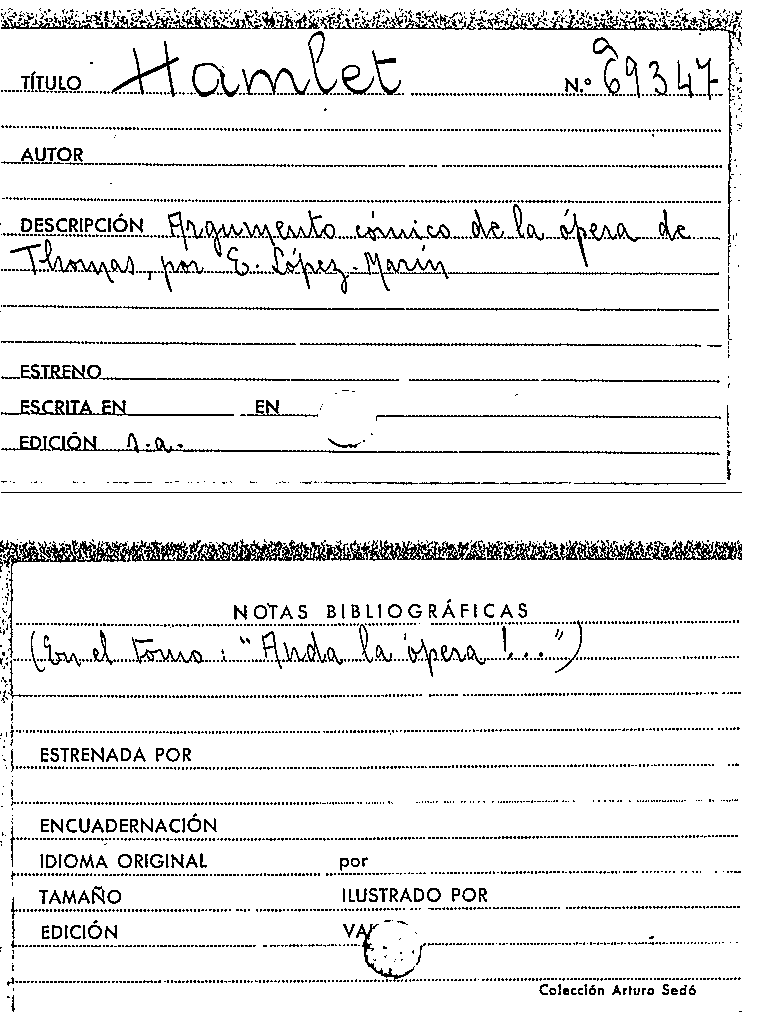 TÍTULO Hamlet N.º 69347
a
AUTOR
DESCRIPCIÓN Argumento cómico de la ópera de
Thomas, por E. López-Marín
ESTRENO
ESCRITA EN EN
EDICIÓN s.a.
NOTAS BIBLIOGRÁFICAS
(En el tomo: "Anda la ópera!...")
ESTRENADA POR
ENCUADERNACIÓN
IDIOMA ORIGINAL por
TAMAÑO ILUSTRADO POR
EDICIÓN
Colección Arturo Sedó